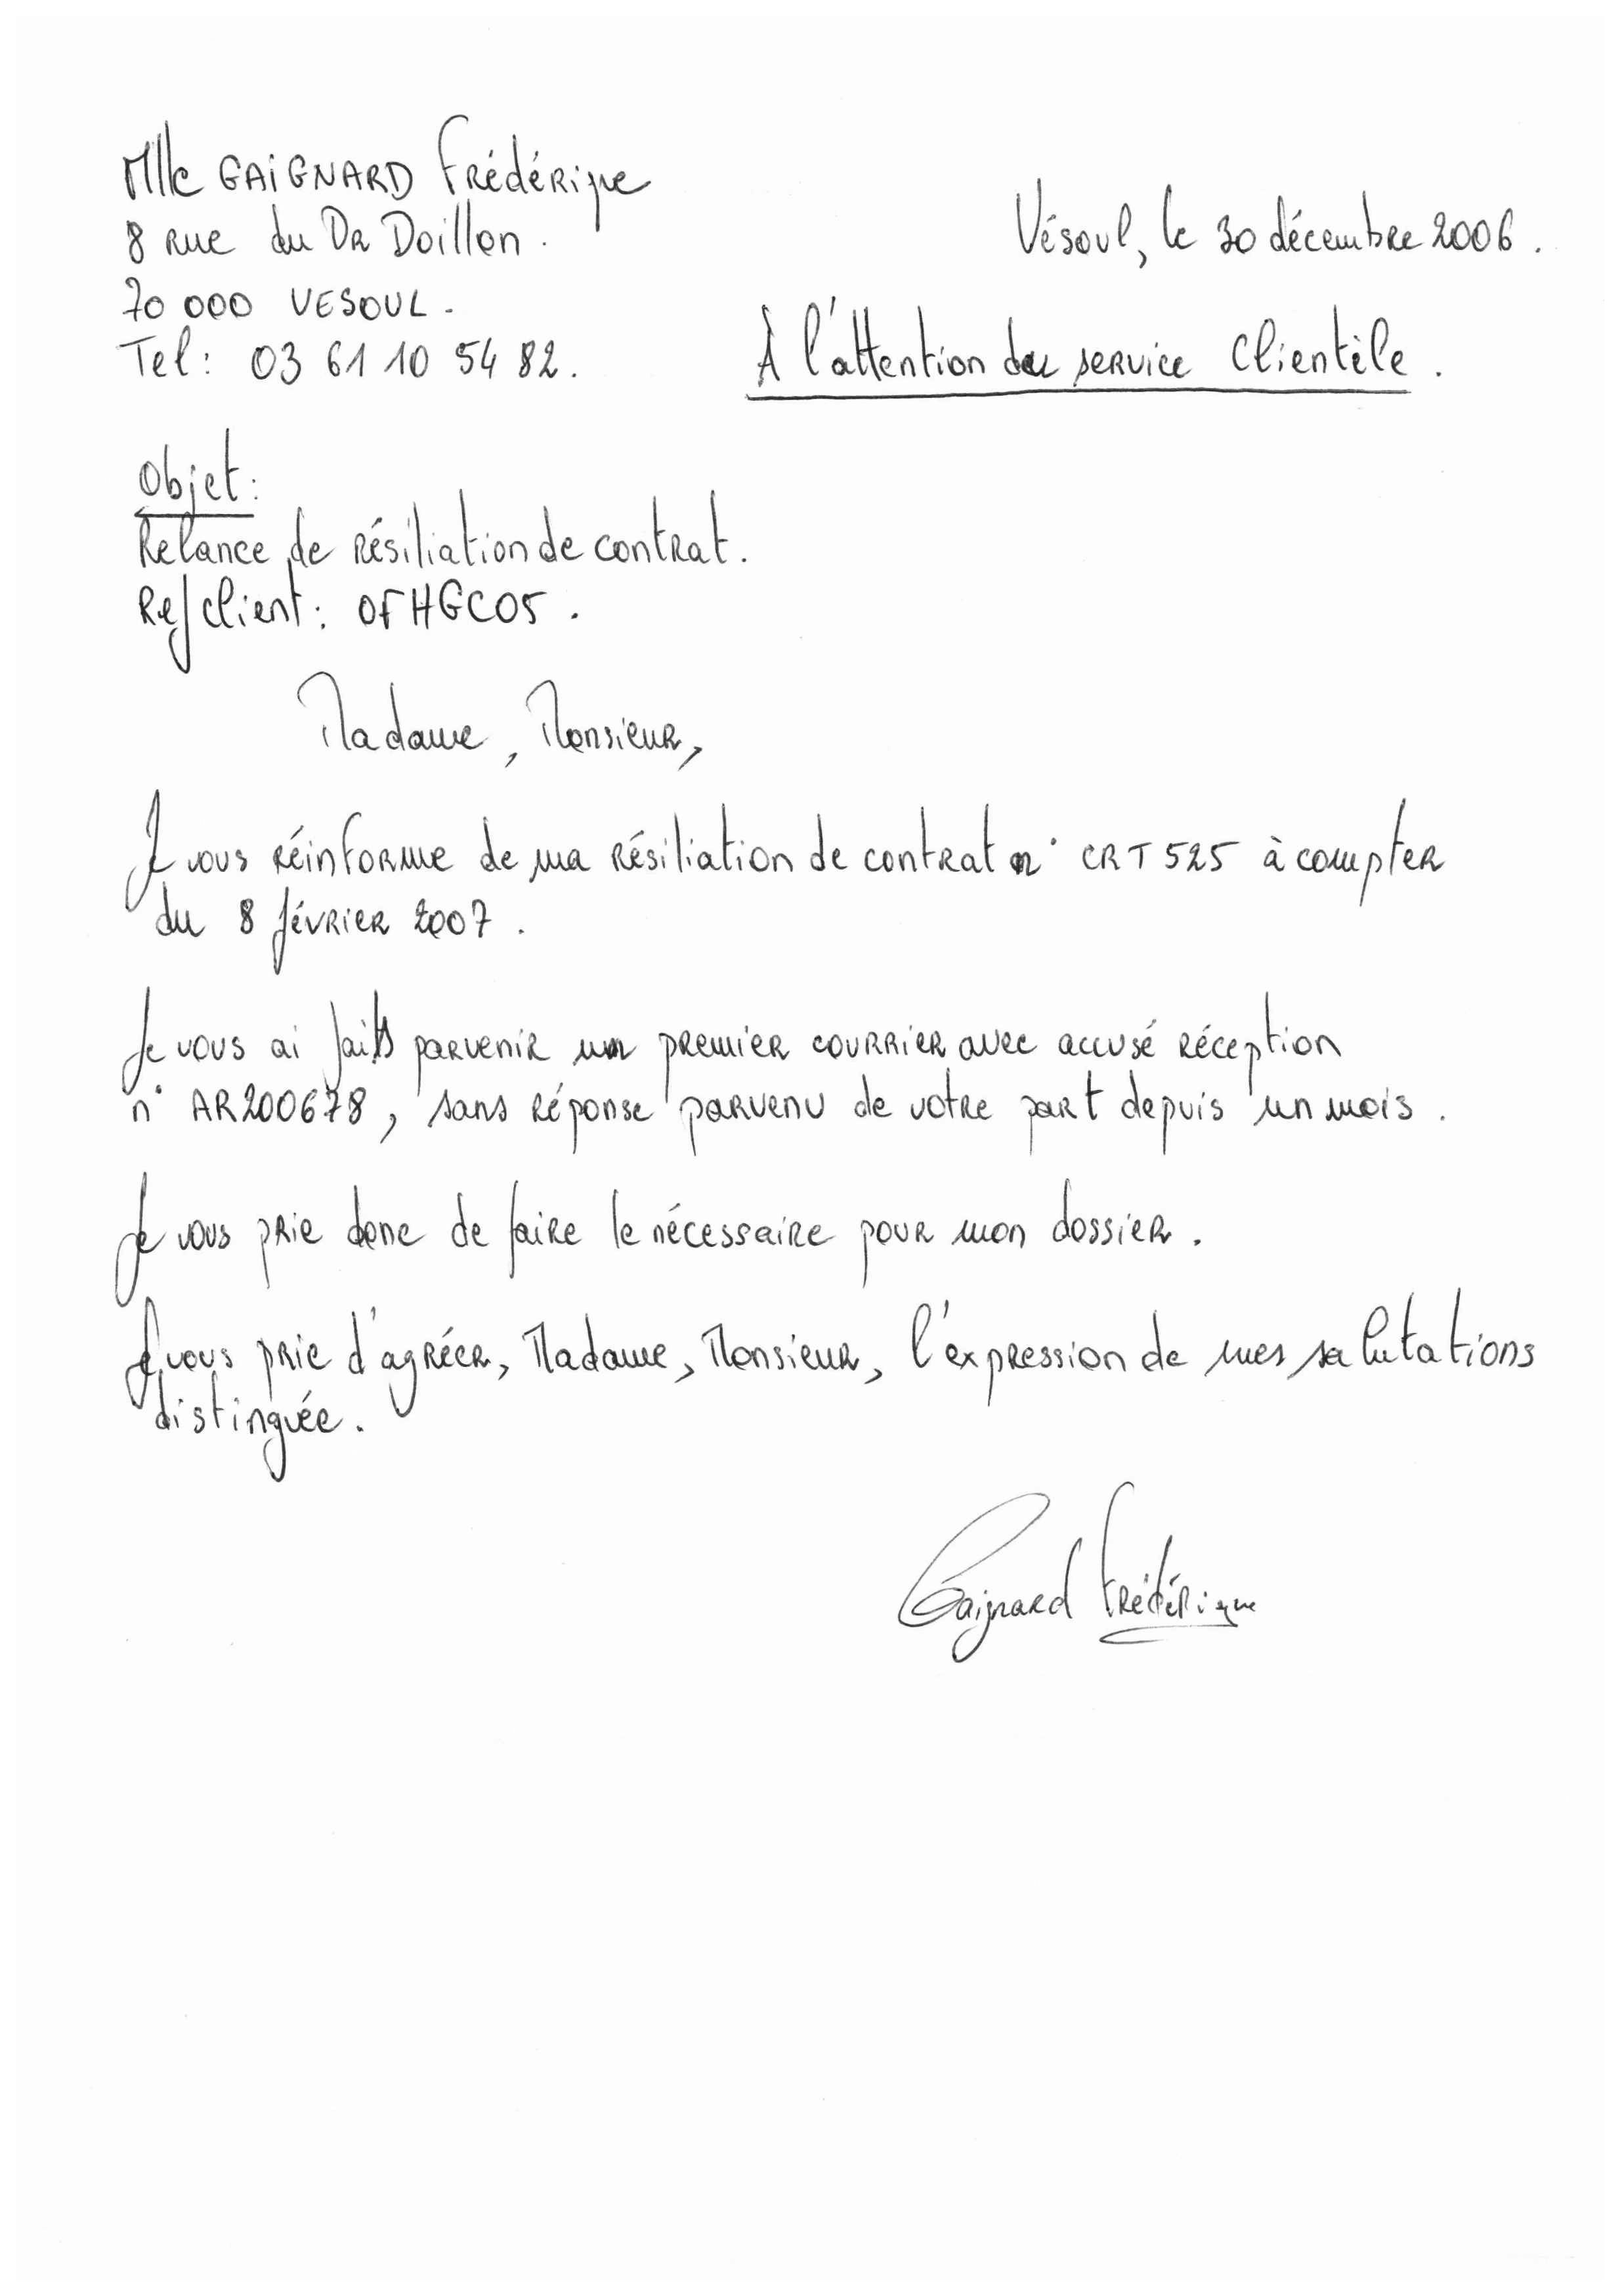 Mlle GAIGNARD Frédérique
8 rue du Dr Doillon.
70 000 VESOUL.
Tel: 03 61 10 54 82.
Vésoul, le 30 décembre 2006.
À l'attention du service Clientèle.
Objet:
Relance de résiliation de contrat.
Ref client: OFHGC05.
Madame, Monsieur,
Je vous réinforme de ma résiliation de contrat n° CRT525 à compter
du 8 février 2007.
Je vous ai fait parvenir un premier courrier avec accusé réception
n° AR200678, sans réponse parvenu de votre part depuis un mois.
Je vous prie donc de faire le nécessaire pour mon dossier.
Je vous prie d'agréer, Madame, Monsieur, l'expression de mes salutations
distinguée.
Gaignard Frédérique